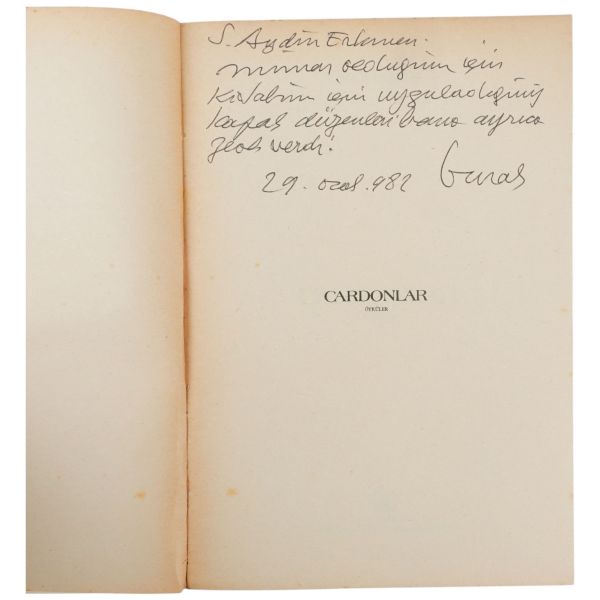 S. Aydın Erkmen.
mimar olduğum için
kitabım için uyguladığınız
kapak düzenleri bana ayrıca
zevk verdi.
29. ocak. 982
CARDONLAR
ÖYKÜLER